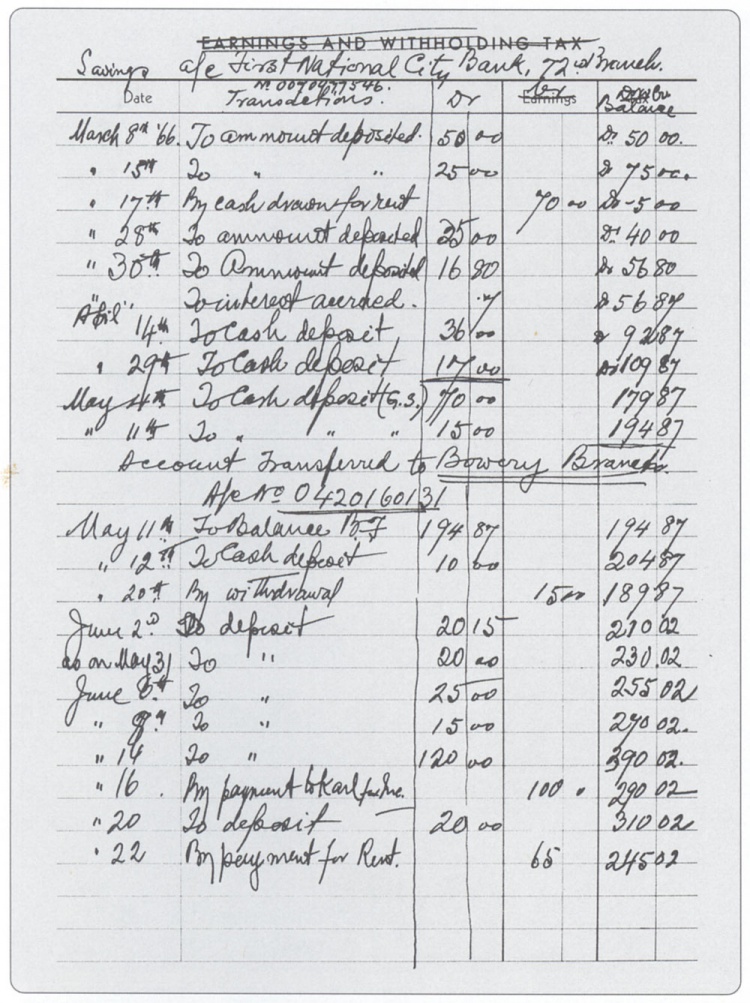 EARNINGS AND WITHHOLDING TAX
Savings a/c First National City Bank, 72nd Branch.
No. 0070477546.
Date Transactions. Dr Earnings Cr Balance
March 8th '66. To ammount deposited. 50 00 Dr 50 00.
" 15th To " " 25 00 Dr 75 00.
" 17th By cash drawn for rent 70 00 Dr 5 00
" 28th To ammount deposited 35 00 Dr 40 00
" 30th To Ammount deposited 16 80 Dr 56 80
" To interest accrued. .7 Dr 56 87
April 14th To Cash deposit 36 00 Dr 92 87
" 29th To Cash deposit 17 00 Dr 109 87
May 4th To Cash deposit (G.S.) 70 00 179 87
" 11th To " " " 15 00 194 87
Account Transferred to Bowery Branch.
A/c No 0420160131
May 11th To Balance B.F 194 87 194 87
" 12th To Cash deposit 10 00 204 87
" 20th By withdrawal 15 00 189 87
June 2d. To deposit 20 15 210 02
as on May 31 To " 20 00 230.02
June 6th To " 25 00 255 02
" 8th To " 15 00 270 02.
" 14 To " 120 00 390 02.
" 16. By payment to Karl for Inc. 100 " 290 02
" 20 To deposit 20 00 310 02
" 22 By payment for Rent. 65 245 02